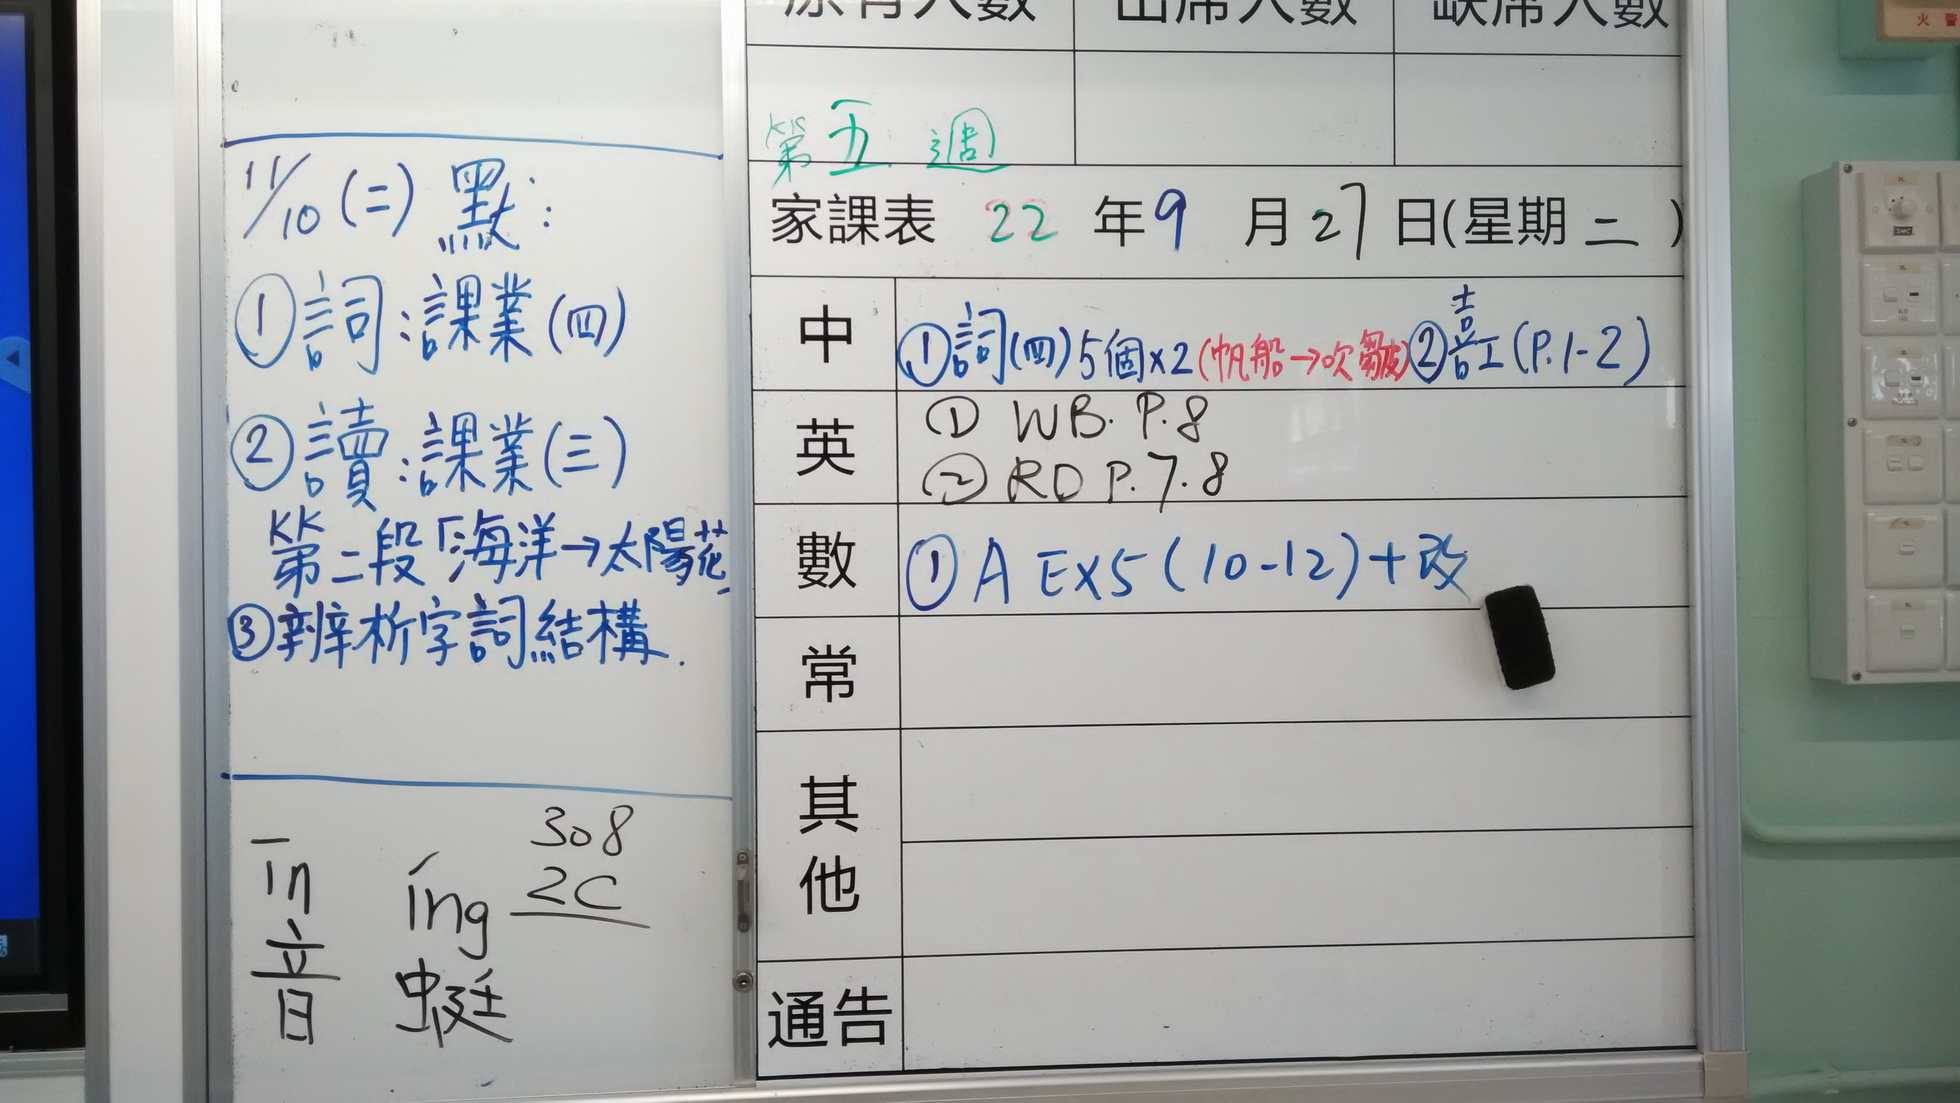 11/10 (二) 默:
①詞:課業(四)
②讀:課業(三)
第二段「海洋→太陽花」
③辨析字詞結構.
īn
音
íng
蜓
308
2C
原有人數 出席人數 缺席人數
第五週
家課表 22 年 9 月 27 日(星期 二 )
中 ①詞(四)5個x2(帆船→吹皺)② (P.1-2)
英 ① WB. P.8
② RD P.7.8
數 ① A EX5 (10-12)+改
常
其他
通告
火警